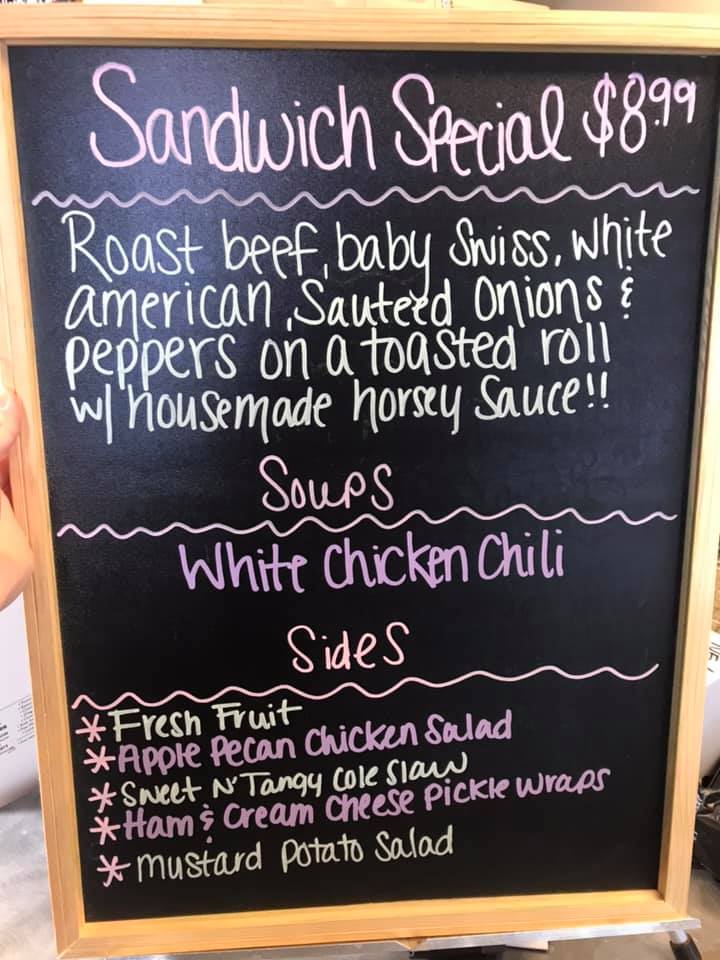 Sandwich Special $8.99
Roast beef, baby Swiss, white
american, Sauteed Onions &
peppers on a toasted roll
w/ housemade horsey Sauce!!
Soups
White Chicken Chili
Sides
* Fresh Fruit
* Apple Pecan Chicken Salad
* Sweet N' Tangy Cole Slaw
* Ham & Cream Cheese Pickle Wraps
* Mustard Potato Salad